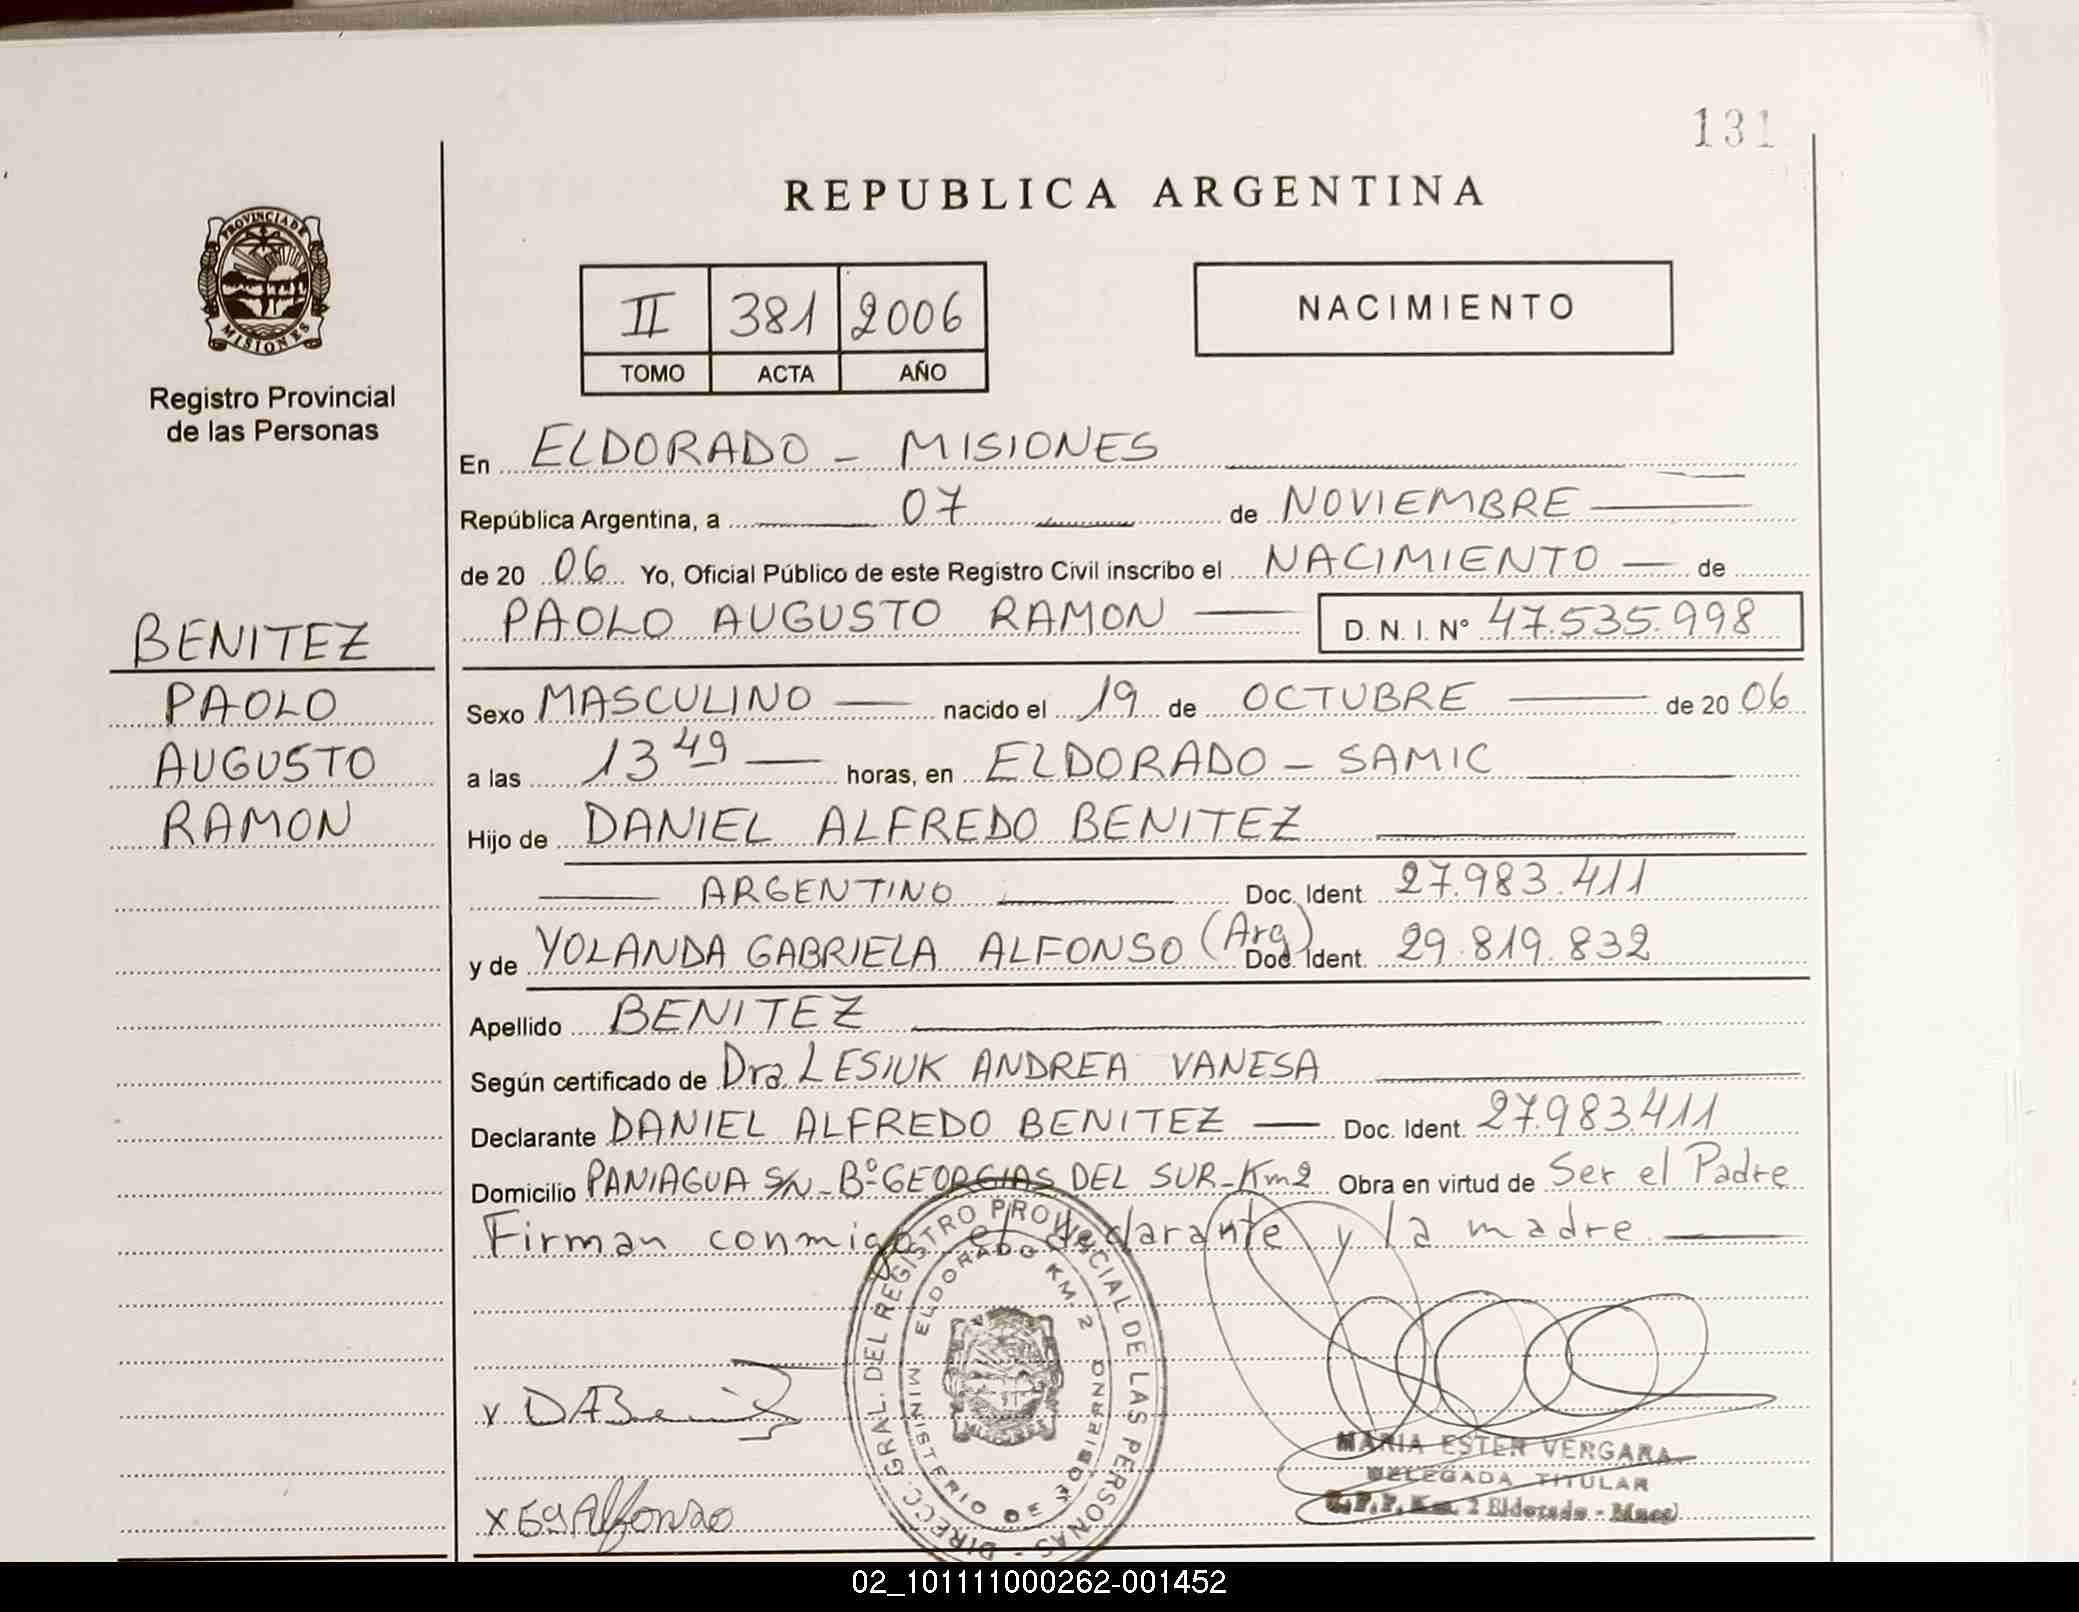 131
REPUBLICA ARGENTINA
PROVINCIA DE
MISIONES
Registro Provincial
de las Personas
II 381 2006
TOMO ACTA AÑO
NACIMIENTO
En ELDORADO - MISIONES
República Argentina, a 07 de NOVIEMBRE
de 20 06 Yo, Oficial Público de este Registro Civil inscribo el NACIMIENTO de
PAOLO AUGUSTO RAMON D. N. I. N° 47.535.998
BENITEZ
PAOLO
AUGUSTO
RAMON
Sexo MASCULINO nacido el 19 de OCTUBRE de 20 06
a las 13 49 horas, en ELDORADO - SAMIC
Hijo de DANIEL ALFREDO BENITEZ
ARGENTINO Doc. Ident. 27.983.411
y de YOLANDA GABRIELA ALFONSO (Arg) Doc. Ident. 29.819.832
Apellido BENITEZ
Según certificado de Dra. LESIUK ANDREA VANESA
Declarante DANIEL ALFREDO BENITEZ Doc. Ident. 27.983.411
Domicilio PANIAGUA S/N - B° GEORGIAS DEL SUR - Km2 Obra en virtud de Ser el Padre
Firman conmigo el declarante y la madre
DIRECC. GRAL. DEL REGISTRO PROVINCIAL DE LAS PERSONAS -
MINISTERIO DE GOBIERNO
ELDORADO KM. 2
MISIONES
x DABeni
x Alfonso
MARIA ESTER VERGARA
DELEGADA TITULAR
Km. 2 Eldorado - Mnes)
02_101111000262-001452